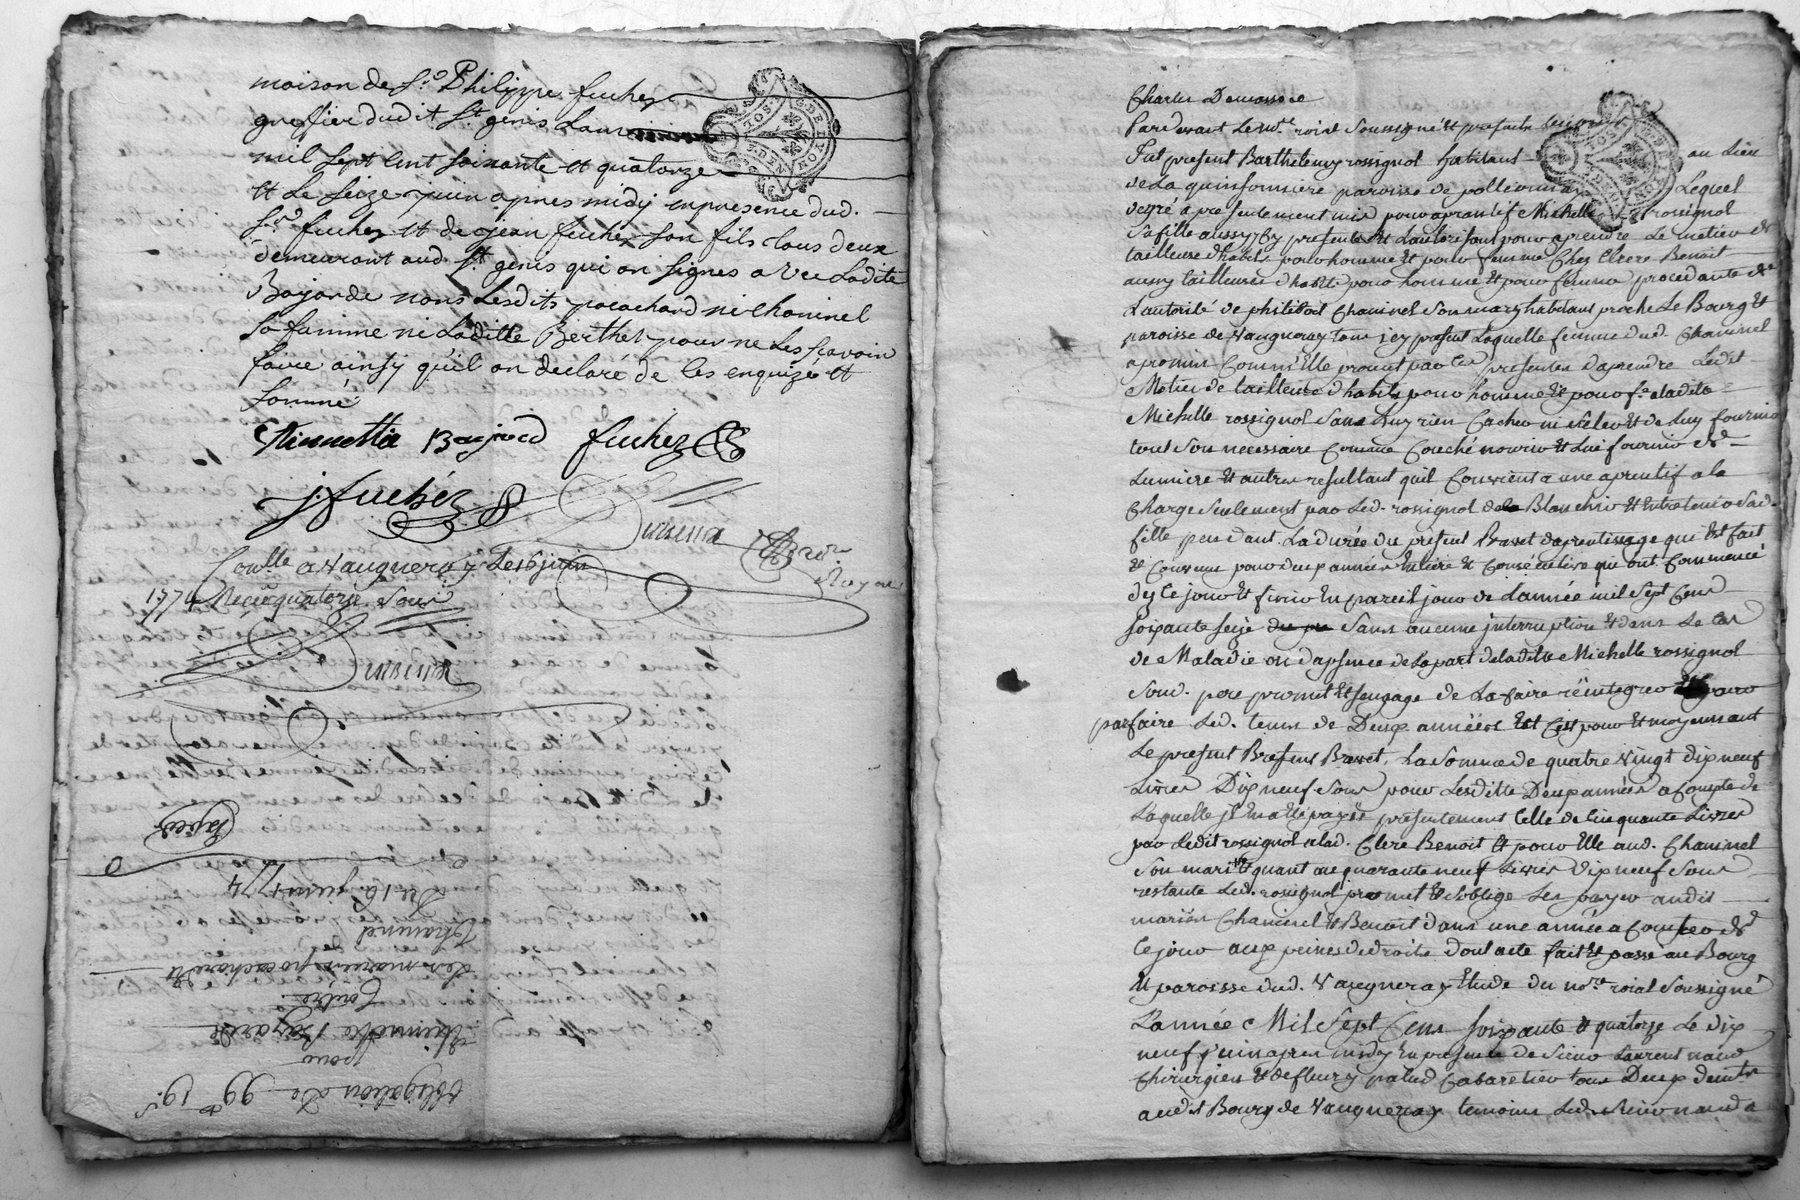 maison de Sr Philippe fuchez
greffier dudit St genis Lan
mil sept cent soixante et quatorze
et Le Seize juin apres midy en presence dud.
Sr fuchez et de jean fuchez son fils tous deux
demeurant aud. St genis qui on signes avec Ladite
Bajarde nons Lesdits pocachard ni Chaninel
sa famme ni Laditte Berthet pour ne Les scavoir
faire ainsy qu'il on declaré de les enquizé et
sommé
Bajard fuchez
j. fuchéz
Coulle a Vaugneray Le 16 juin
1774 Reçu quatorze sous
papier
Du 16 juin 1774
Chaninel
Les mariés pocachard et
Contre
Bajarde
pour
Obligation de 99 lt 19 s
Pardevant Le nre roial Soussigné et presents
Fut present Barthelemy rossignol habitant au Lieu
de La quinsonniere paroisse de pollionnay Lequel
degré a presentement mis pour aprantif Michelle rossignol
Sa fille aussy icy presente et L'autorisant pour aprendre Le metier de
tailleuse d'habits pour homme et pour femme Chez Clere Benoit
aussy tailleuse d'habits pour homme et pour femme procedante de
L'autorité de philibert Chaninel Son mary habitant proche Le Bourg et
paroisse de Vaugneray tous icy present Laquelle femme dud. Chaninel
a promis Comm'Elle promet par Ces presentes d'aprendre Ledit
Metier de tailleuse d'habits pour homme et pour fe. a ladite
Michelle rossignol Sans Luy rien Cacher ni Celer et de Luy fournir
tout Son necessaire Comme Couché nourir et Lui fournir de
Lumiere et autres resultant quil Convient a une aprentif a la
Charge Seulement par Led. rossignol de la Blanchir et Entretenir Sad.
fille pendant La durée du present Brevet d'aprentissage qui Est fait
et Convenu pour deux années Entiere et Consecutive qui ont Commencé
dez Ce jour et finir En pareil jour de L'année mil Sept Cens
Soixante Seize du pre Sans aucune jnterruption et dans Le Cas
de Maladie ou d'apsence de La part de laditte Michelle rossignol
Sond. pere promet et Sengage de La faire réintegrer pour
parfaire Led. tems de Deux années Et Cest pour et moyennant
Le present Present Brevet, La Somme de quatre Vingt dix neuf
Livres Dix neuf Sous pour Lesditte Deux années a Compte de
Laquelle jl En a Eté payée presentement Celle de Cinquante Livres
par Ledit rossignol alad. Clere Benoit et pour Elle aud. Chaninel
Son mari et quant au quarante neuf Livres Dix neuf Sous
restante Led. rossignol promet et Soblige Les payer audit
mariés Chaninel et Benoit dans une année a Compter de
Ce jour aux peines de droits Dont acte fait et passé au Bourg
et paroisse dud. Vaugneray Etude du nore roial Soussigné
L'année Mil Sept Cens Soixante et quatorze Le dix
neuf juin apres midy En presence de Sieur Laurent naud
Chirurgien et de fleury palud Cabaretier tous Deux demts
audit Bourg de Vaugneray temoins Led. Sieur naud a